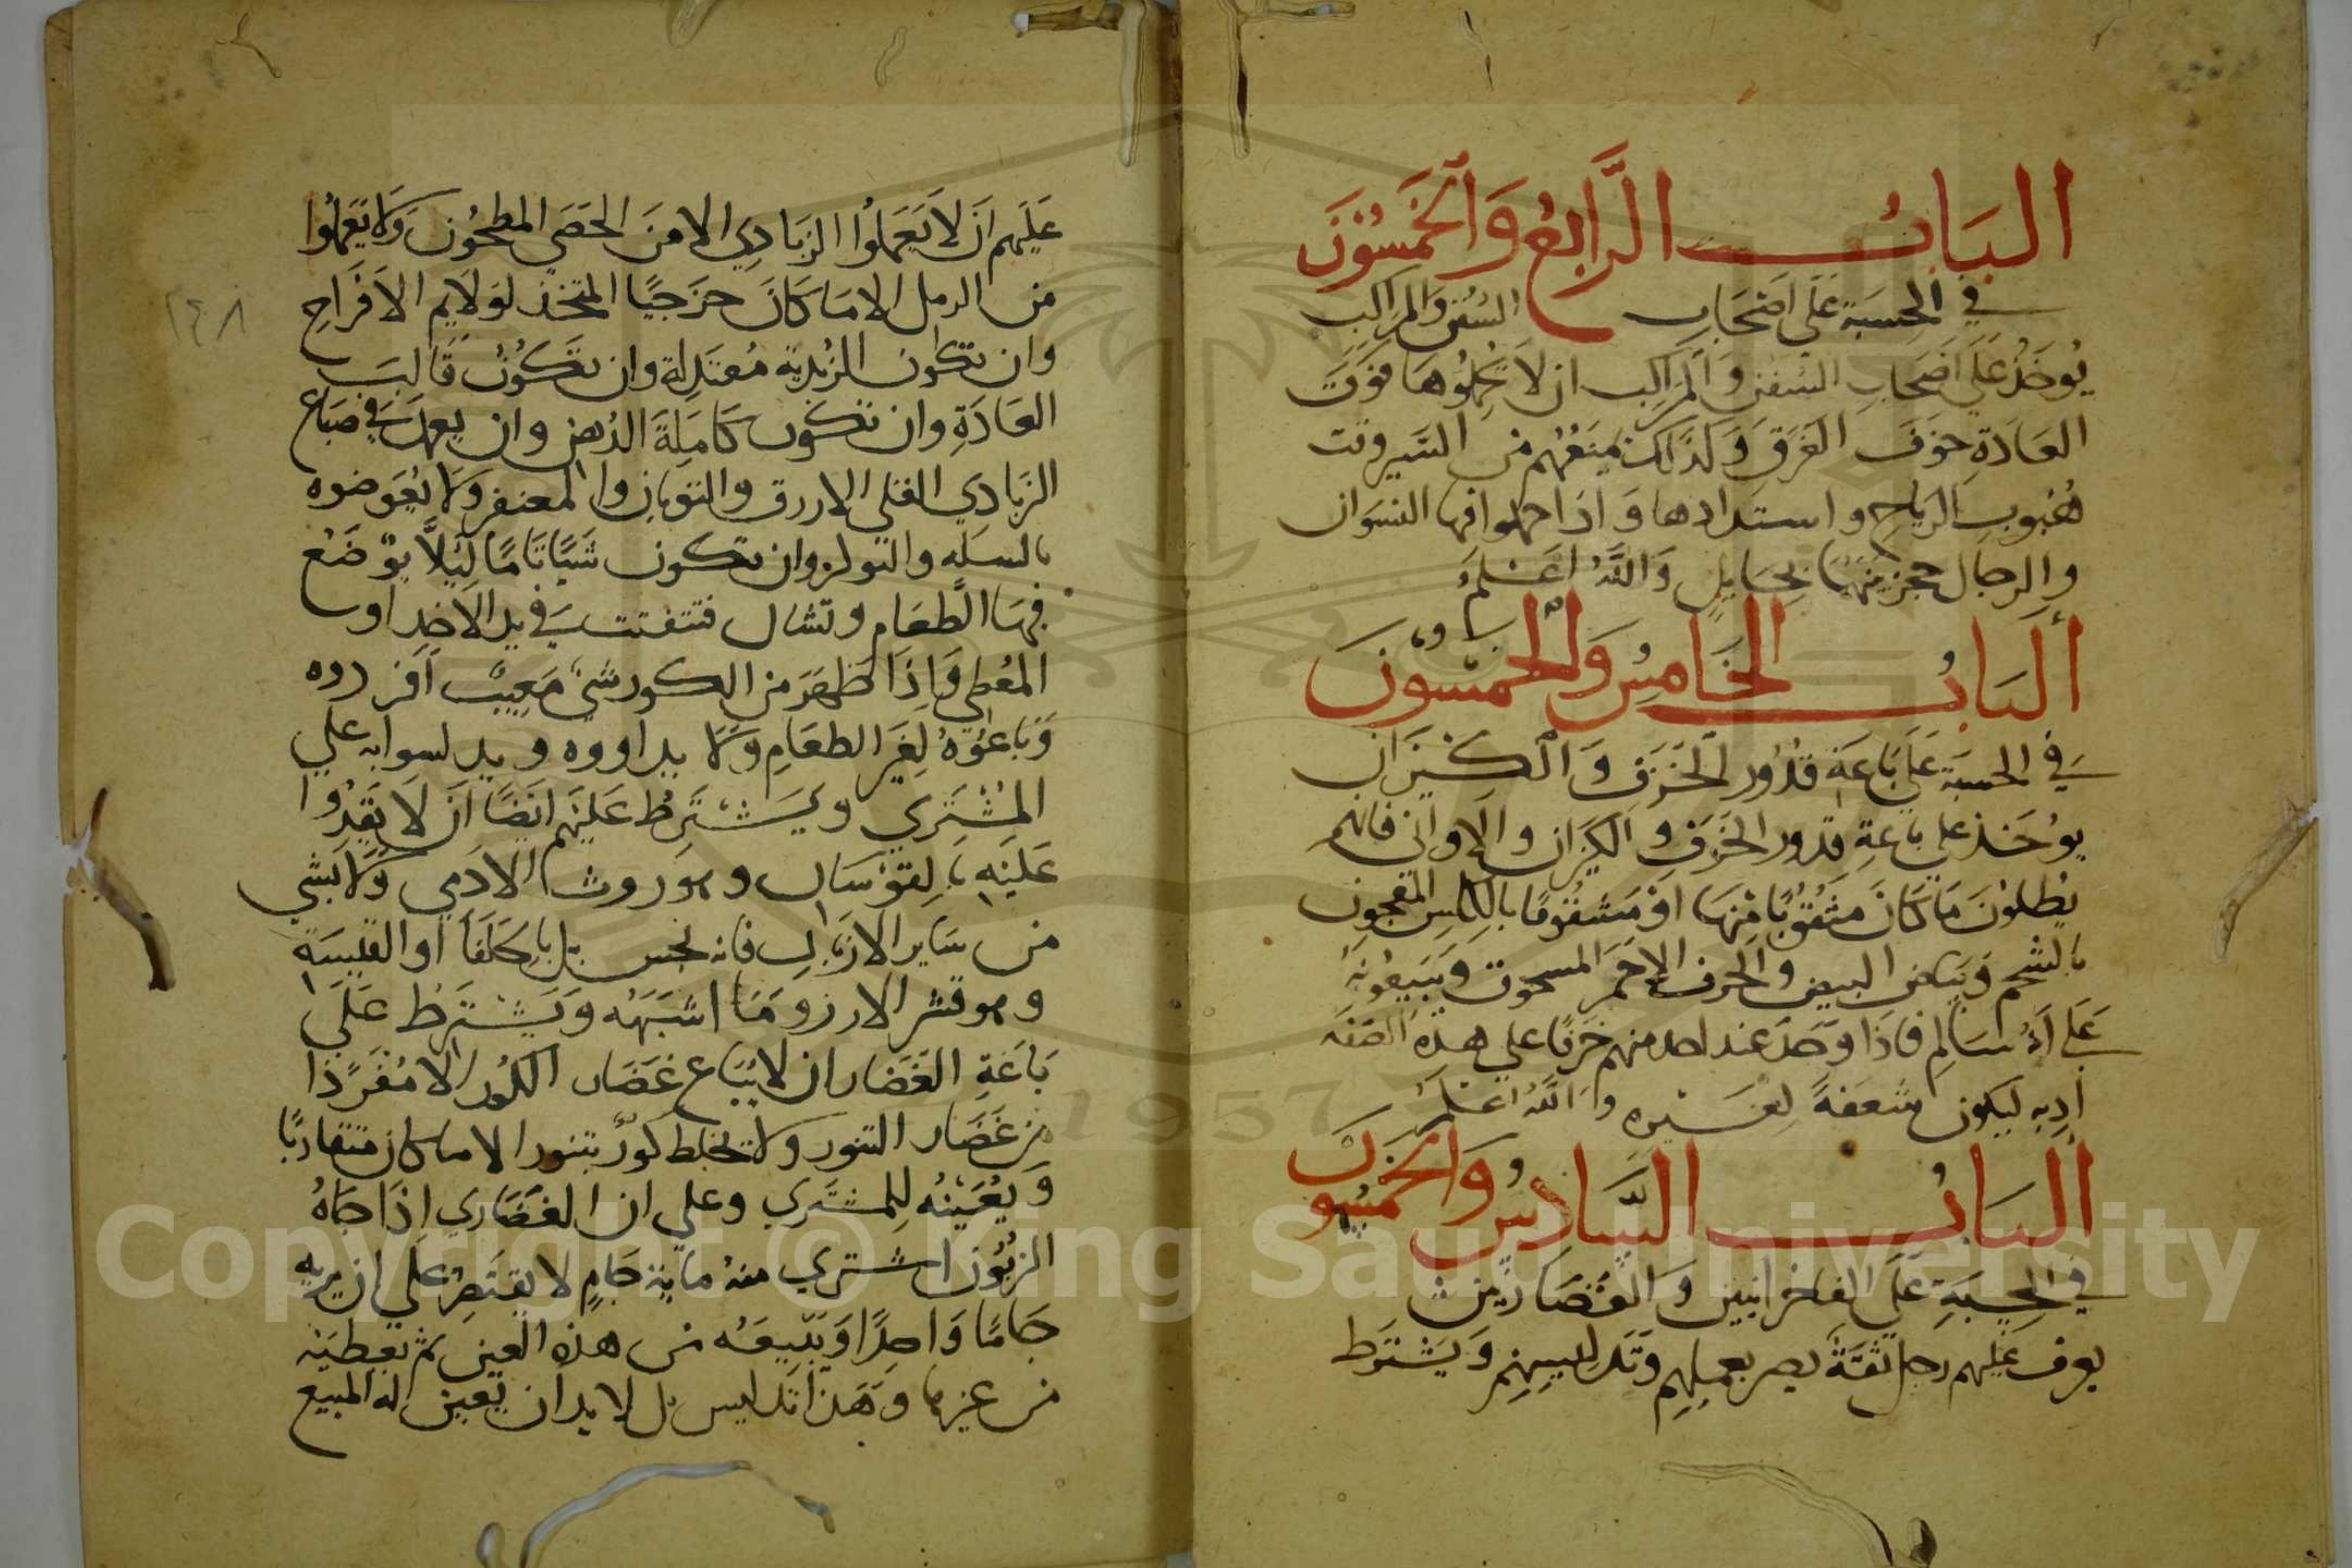 الباب الرابع والخمسون
في الحسبة على اصحاب السفن والمراكب
يوخذ على اصحاب السفن والمراكب ان لا يحملوها فوق
العادة خوف الغرق وكذلك يمنعهم من السير وقت
هبوب الرياح واستدادها واذا حملوا فيها النسوان
والرجال حجز بينهما بحايل والله اعلم
الباب الخامس والخمسون
في الحسبة على باعة قدور الخزف والكيزان
يوخذ على باعة قدور الخزف والكيزان والاواني فانهم
يطلون ما كان مثقوبا منها او مشقوقا بالكلس المعجون
بالشحم وبياض البيض والخزف الاحمر المسحوق ويبيعونه
على انه سالم فاذا وجد عند احد منهم خزفا على هذه الصفه
ادبه ليكون لغيره والله اعلم
الباب السادس والخمسون
في الحسبة على الفاخرانيين والغضاريين
يعرف عليهم رجل ثقة بصير بعملهم وتدليسهم ويشترط
عليهم ان لا يعملوا الزبادي الا من الحصى المطحون ولا يعملوا
من الرمل الا ما كان خرجيا المتخذ لولايم الافراح
وان تكون الزبدية معتدلة وان تكون قالب
العادة وان تكون كاملة الدهن وان يعمل في صباغ
الزبادي القلي الازرق والتوبان والمعنفر ولا يعوضوه
بالسله وان تكون شيا تاما ليلا يوضع
فيها الطعام وتشال فتتفتت في يد الاخد او
المعطي واذا ظهر من الكور شي معيب افردوه
وباعوه لغير الطعام ولا يداووه على
المشتري ويشترط عليهم ايضا ان لا يقدوا
عليه بالقوسان وهو روث الادمي ولا بشي
من ساير الازبال فانه نجس بل بالحلفا او القلبسه
وهو قشر الارز وما اشبهه ويشترط على
باعة الغضار ان لا يباع غضار الكور الا مفردا
من غضار التنور ولا تخلط كور بتنور الا ما كان متقاربا
ويعينه للمشتري وعلى ان الغضاري اذا جاه
الزبون اشترى منه ماية جام لا يقتصر على ان يريه
جاما واحدا ويبيعه من هذه العين ثم يعطيه
من غيرها وهذا تدليس بل لا بد ان يعين له المبيع
٢٤٨
1957
Copyright © King Saud University